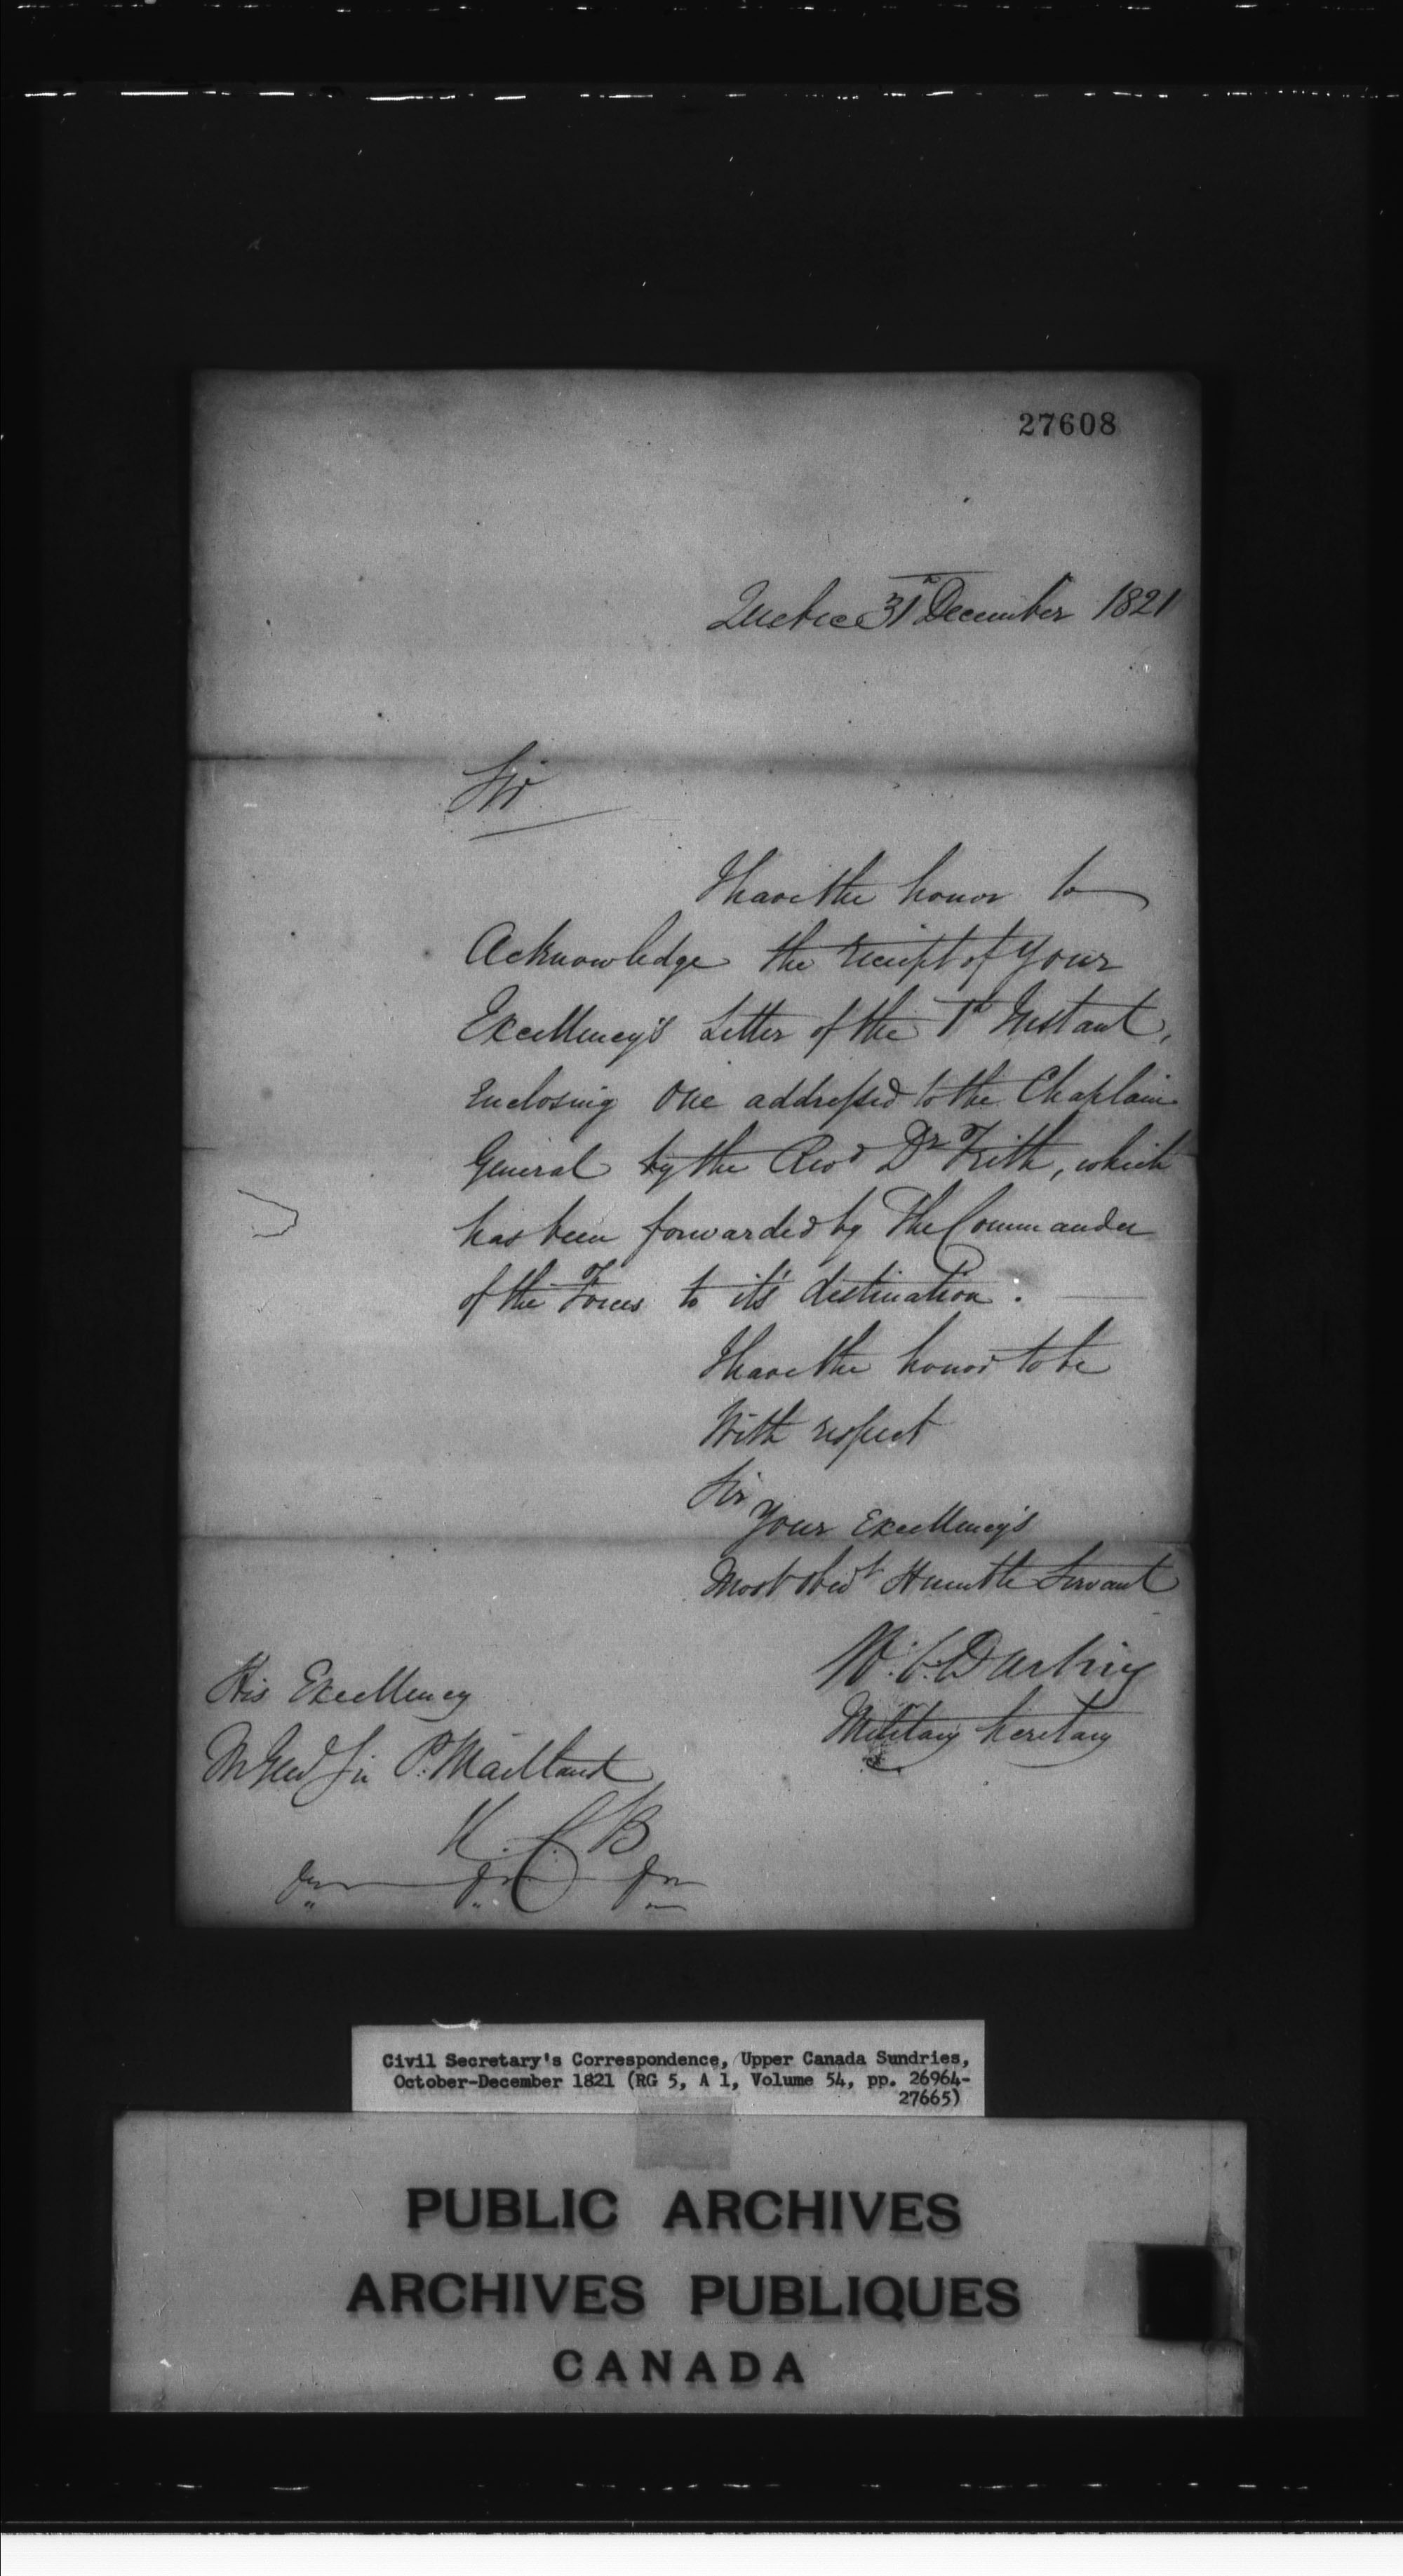 27608
Quebec 31st December 1821
Sir
I have the honor to
Acknowledge the receipt of your
Excellency's Letter of the 1st Instant,
enclosing one addressed to the Chaplain
General by the Revd Dr Frith, which
has been forwarded by The Commander
of the Forces to it's destination.
I have the honor to be
With respect
Sir
Your Excellency's
Most Obedt Humble Servant
H. C. Darling
Military Secretary
His Excellency
M Genl Sir P. Maitland
K. C. B
Civil Secretary's Correspondence, Upper Canada Sundries,
October-December 1821 (RG 5, A 1, Volume 54, pp. 26964-
27665)
PUBLIC ARCHIVES
ARCHIVES PUBLIQUES
CANADA